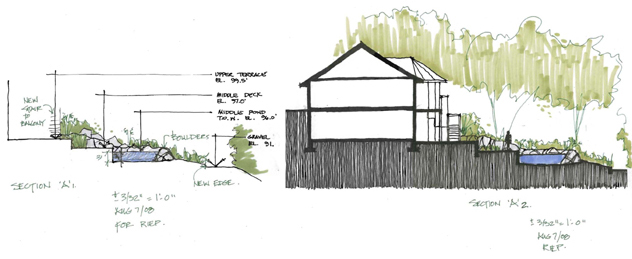 UPPER TERRACE
EL. 99.5'
MIDDLE DECK
EL. 97.0'
MIDDLE POND
T.O.W. EL. 96.0'
GRAVEL
EL. 91.
NEW
STAIR
TO
BALCONY
BOULDERS
3'
NEW EDGE.
SECTION 'A'1.
± 3/32" = 1'-0"
AUG 7/08
FOR
SECTION 'A'2.
± 3/32" = 1'-0"
AUG 7/08